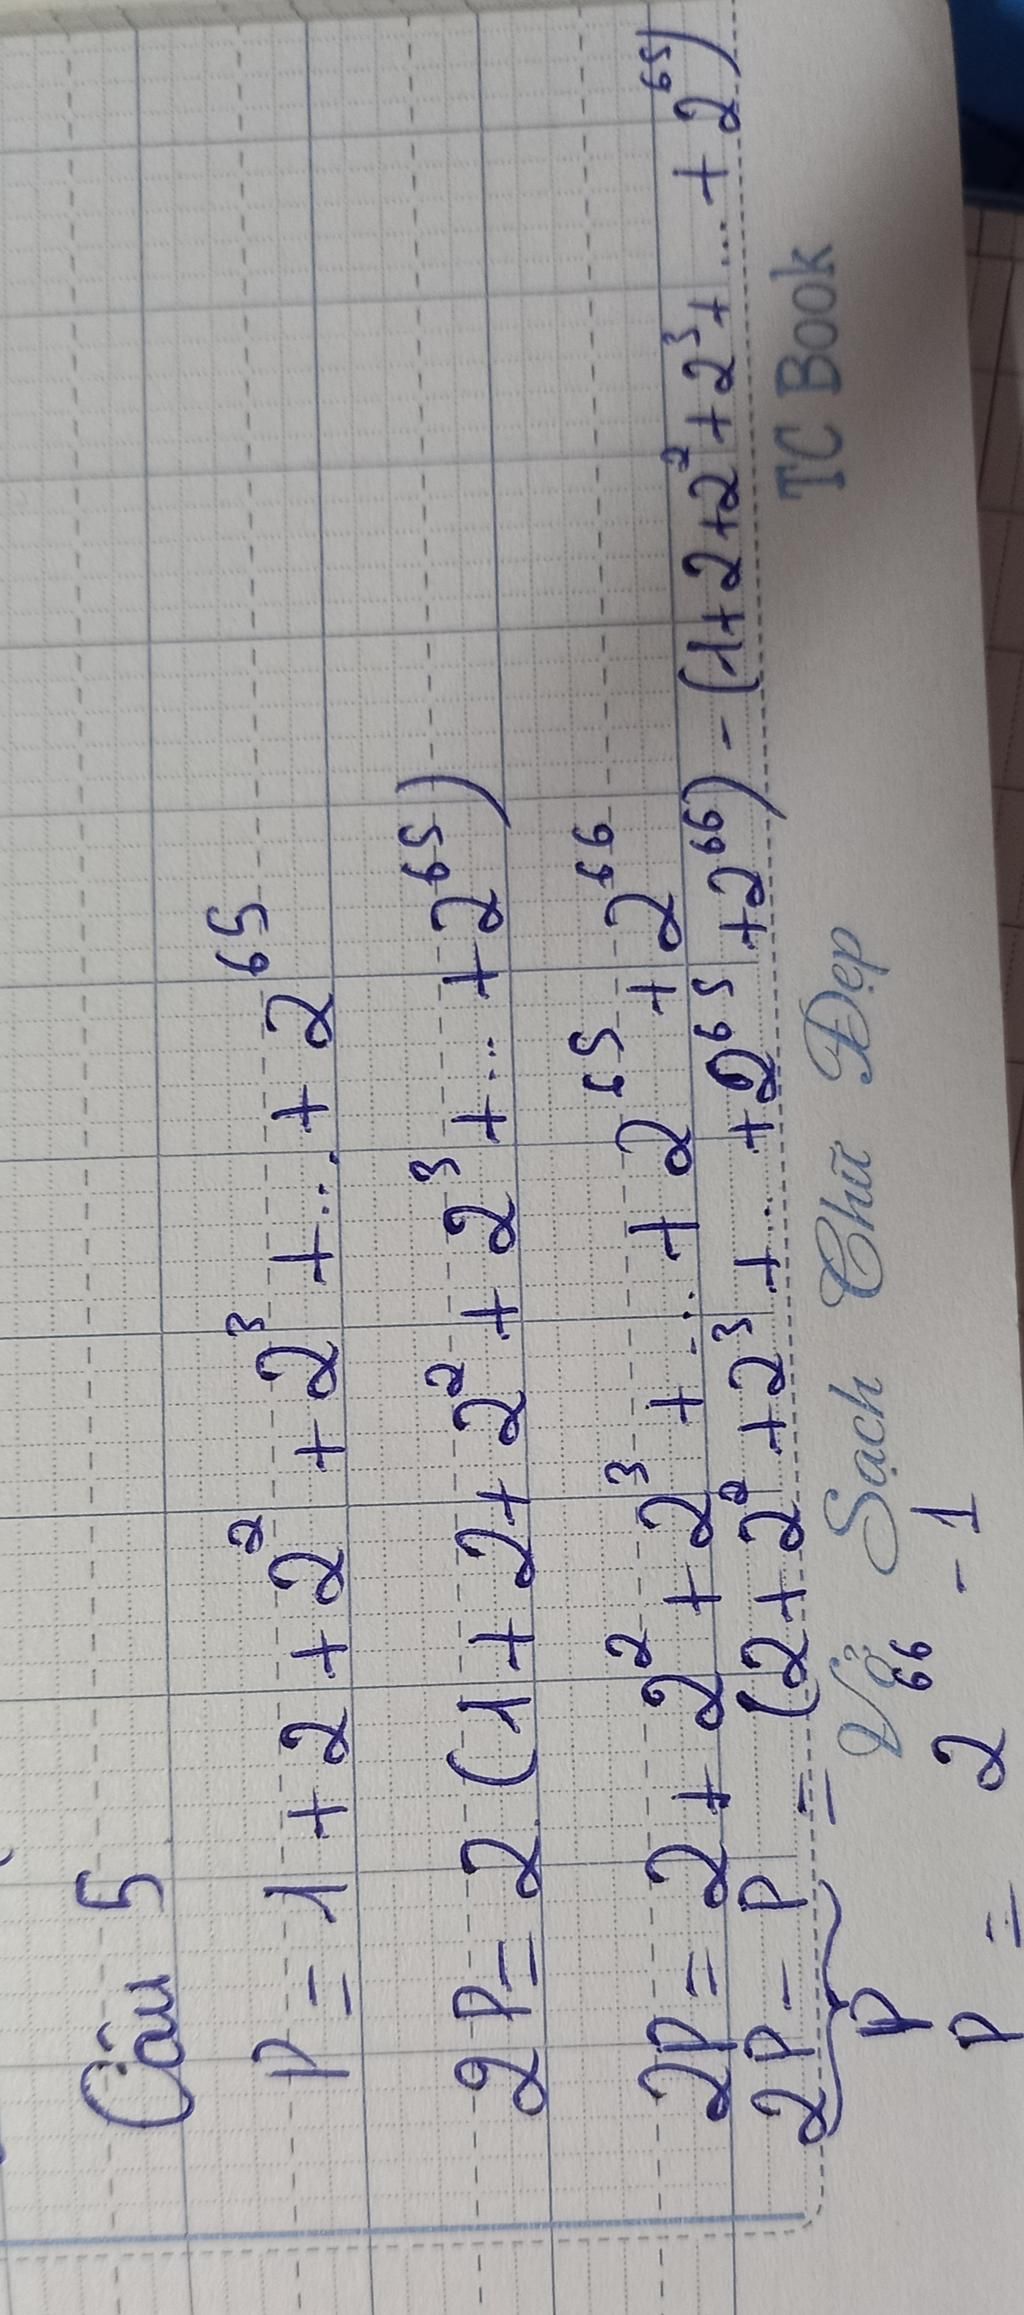 Câu 5
P = 1 + 2 + 2² + 2³ + ... + 2⁶⁵
2P = 2.(1 + 2 + 2² + 2³ + ... + 2⁶⁵)
2P = 2 + 2² + 2³ + ... + 2⁶⁵ + 2⁶⁶
2P - P = (2 + 2² + 2³ + ... + 2⁶⁵ + 2⁶⁶) - (1 + 2 + 2² + 2³ + ... + 2⁶⁵)
P
Vở Sạch Chữ Đẹp TC Book
P = 2⁶⁶ - 1